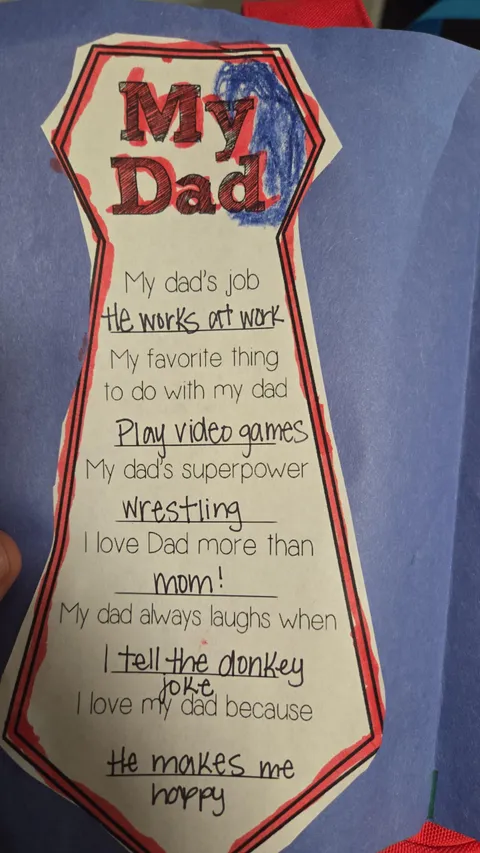 My
Dad
My dad's job
He works at work
My favorite thing
to do with my dad
Play video games
My dad's superpower
wrestling
I love Dad more than
mom!
My dad always laughs when
I tell the donkey
joke
I love my dad because
He makes me
happy